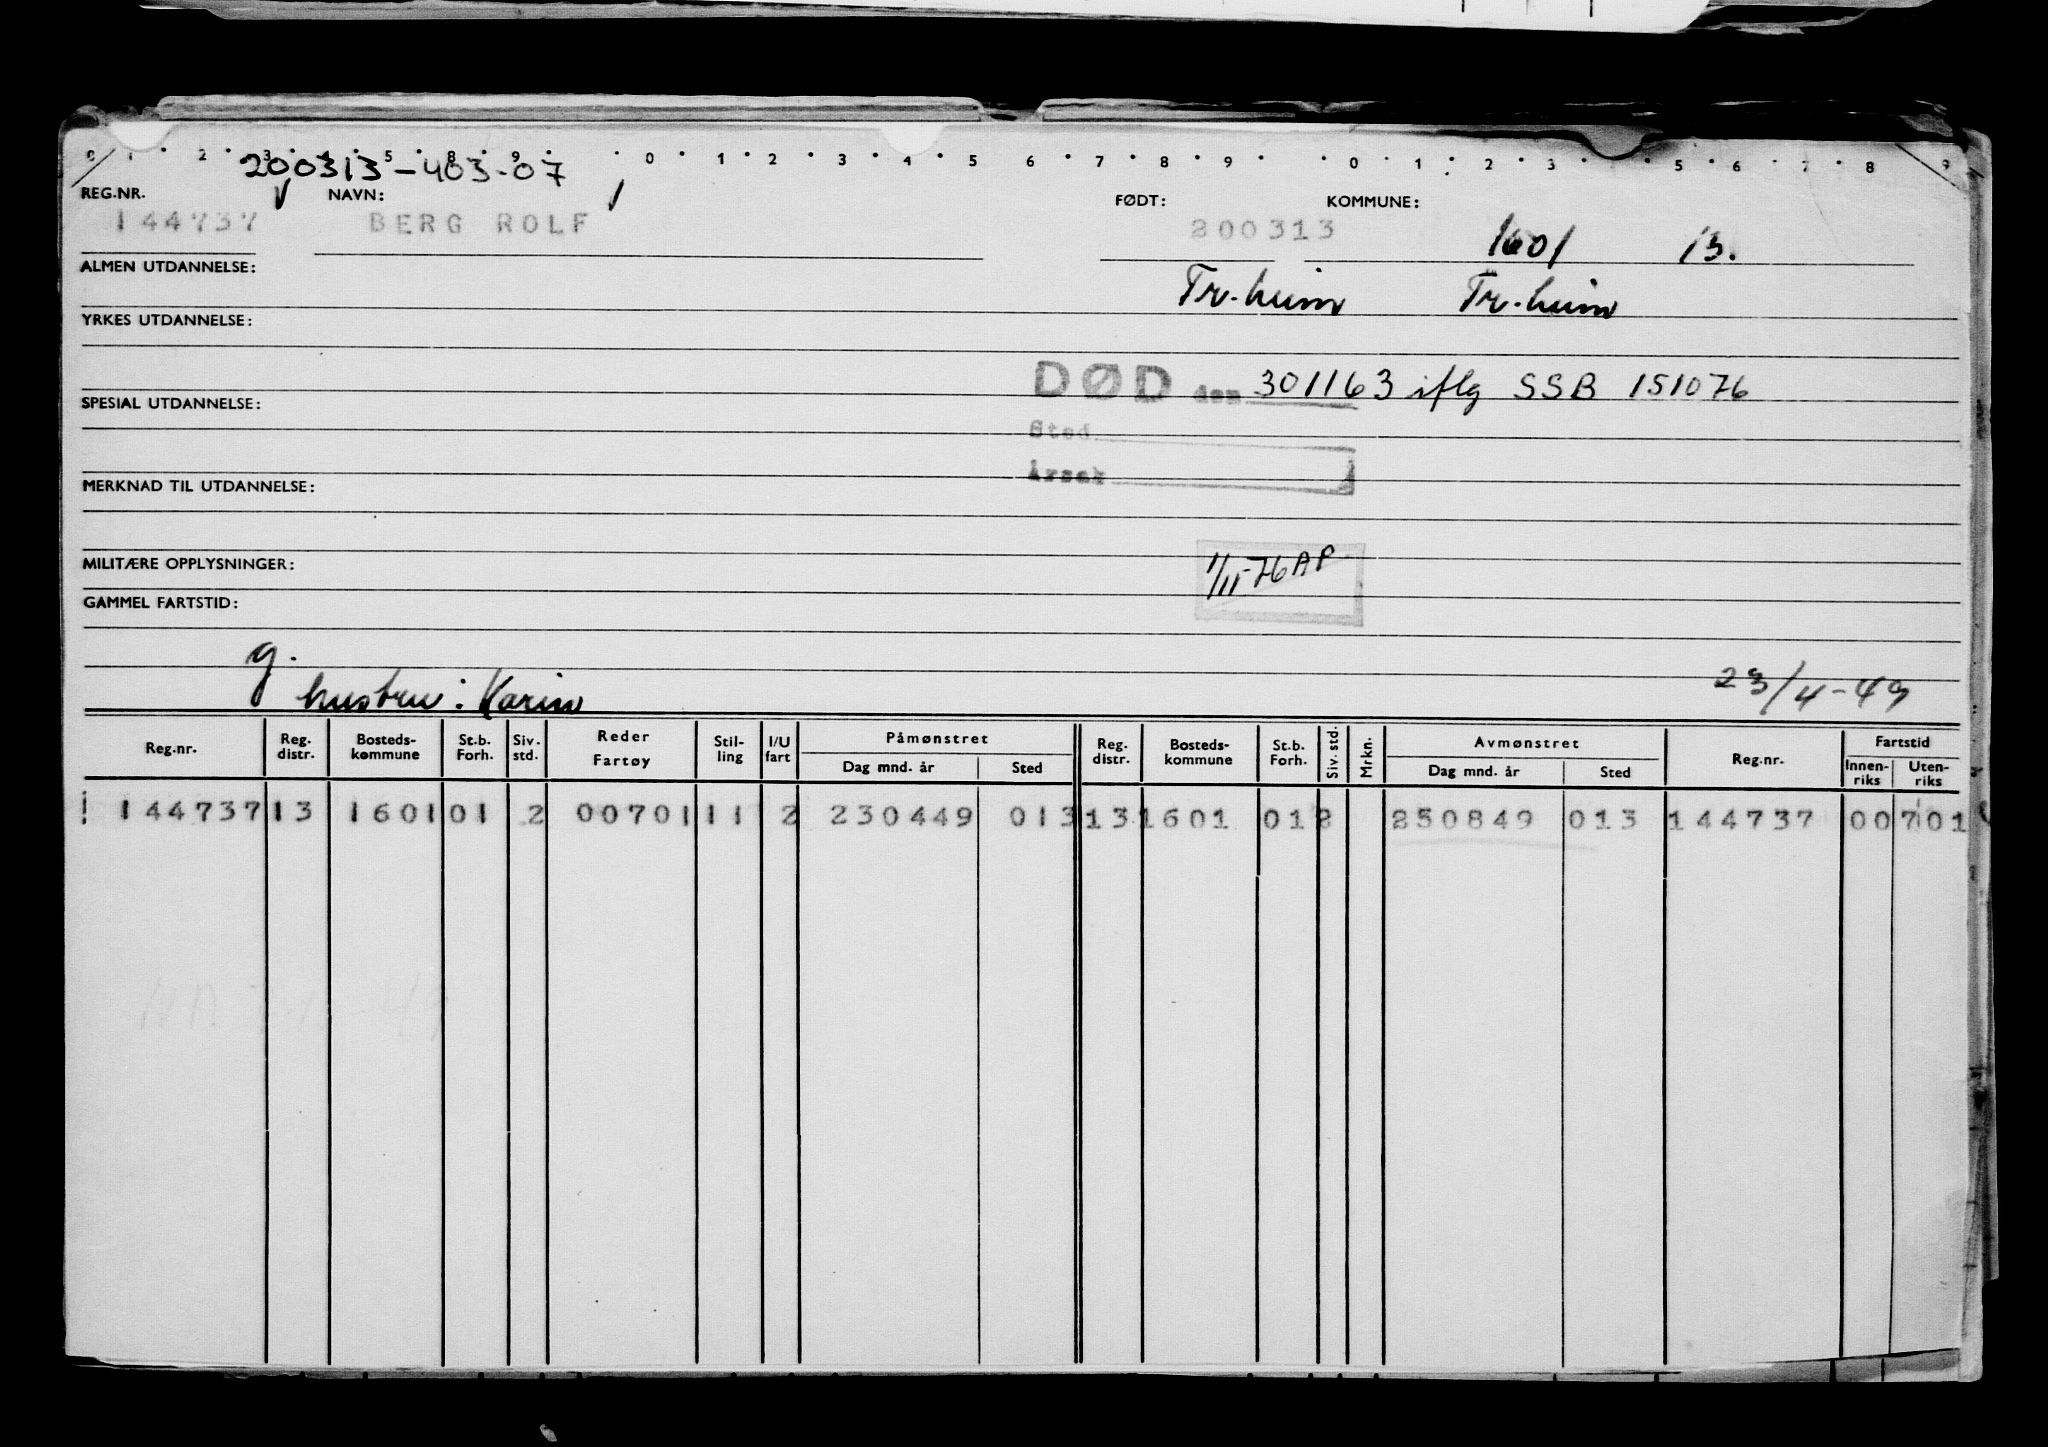 0 1 2 3 4 5 8 9 0 1 2 3 4 5 6 7 8 9 0 1 2 3 5 6 7 8 9
200313-403-07
REG.NR. NAVN: FØDT: KOMMUNE:
144737 BERG ROLF 200313 1601 13.
ALMEN UTDANNELSE: Tr.heim Tr.heim
YRKES UTDANNELSE:
DØD den 301163 iflg SSB 151076
SPESIAL UTDANNELSE:
Sted
Årsak
MERKNAD TIL UTDANNELSE:
MILITÆRE OPPLYSNINGER: 1/11-76 AP
GAMMEL FARTSTID:
g.
hustru: Karin 23/4-49
Reg.nr. Reg. distr. Bosteds- kommune St.b. Forh. Siv. std. Reder Fartøy Stil- ling I/U fart Påmønstret Dag mnd. år Sted Reg. distr. Bosteds- kommune St.b. Forh. Siv. std. Mrkn. Avmønstret Dag mnd. år Sted Reg.nr. Fartstid Innen- riks Uten- riks
144737 13 1601 01 2 00701 11 2 230449 013 13 1601 01 2 250849 013 144737 00701